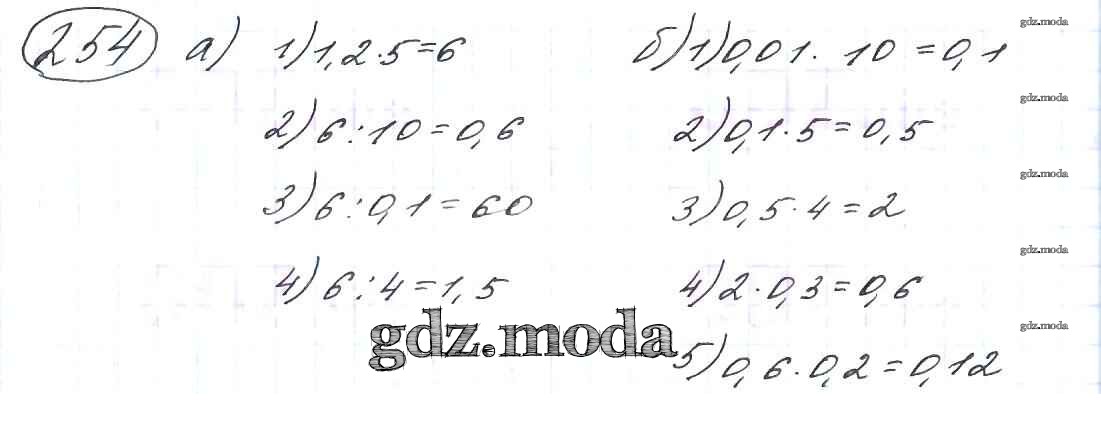 254 а) 1) 1,2·5=6
2) 6:10=0,6
3) 6:0,1=60
4) 6:4=1,5
б) 1) 0,01·10=0,1
2) 0,1·5=0,5
3) 0,5·4=2
4) 2·0,3=0,6
5) 0,6·0,2=0,12
gdz.moda
gdz.moda
gdz.moda
gdz.moda
gdz.moda
gdz.moda